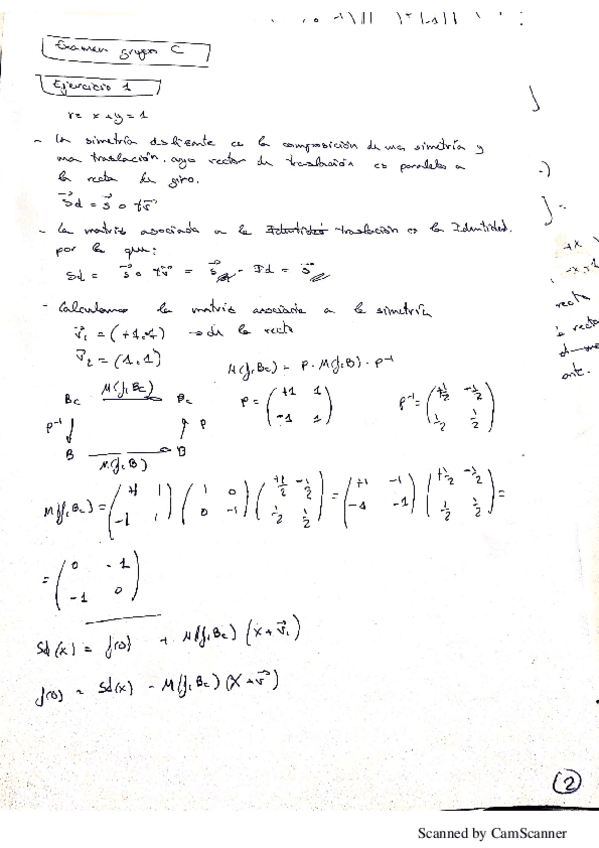 Examen grupo C
Ejercicio 1
r≡ x+y=1
- La simetría deslizante es la composición de una simetría y
una traslación, cuyo vector de traslación es paralelo a
la recta de giro.
Sd = s o tv
- La matriz asociada a la traslación es la Identidad.
por lo que:
Sd = s o tv = s · Id = s
- Calculamos la matriz asociada a la simetría
v₁ = (+1,-1) → de la recta
v₂ = (1,1)
M(f,Bc) = P · M(f,B) · P⁻¹
Bc M(f,Bc) Bc
P = (+1 1
-1 1)
P⁻¹ = (+1/2 -1/2
1/2 1/2)
P⁻¹ P
B M(f,B) B
M(f,Bc) = (+1 1 / -1 1) (1 0 / 0 -1) (+1/2 -1/2 / 1/2 1/2) = (+1 -1 / -1 -1) (+1/2 -1/2 / 1/2 1/2) =
= (0 -1
-1 0)
Sd(x) = f(0) + M(f,Bc) (x+v₁)
f(0) = Sd(x) - M(f,Bc) (x+v)
+x
-x,1
recta
recta
ante.
2
Scanned by CamScanner